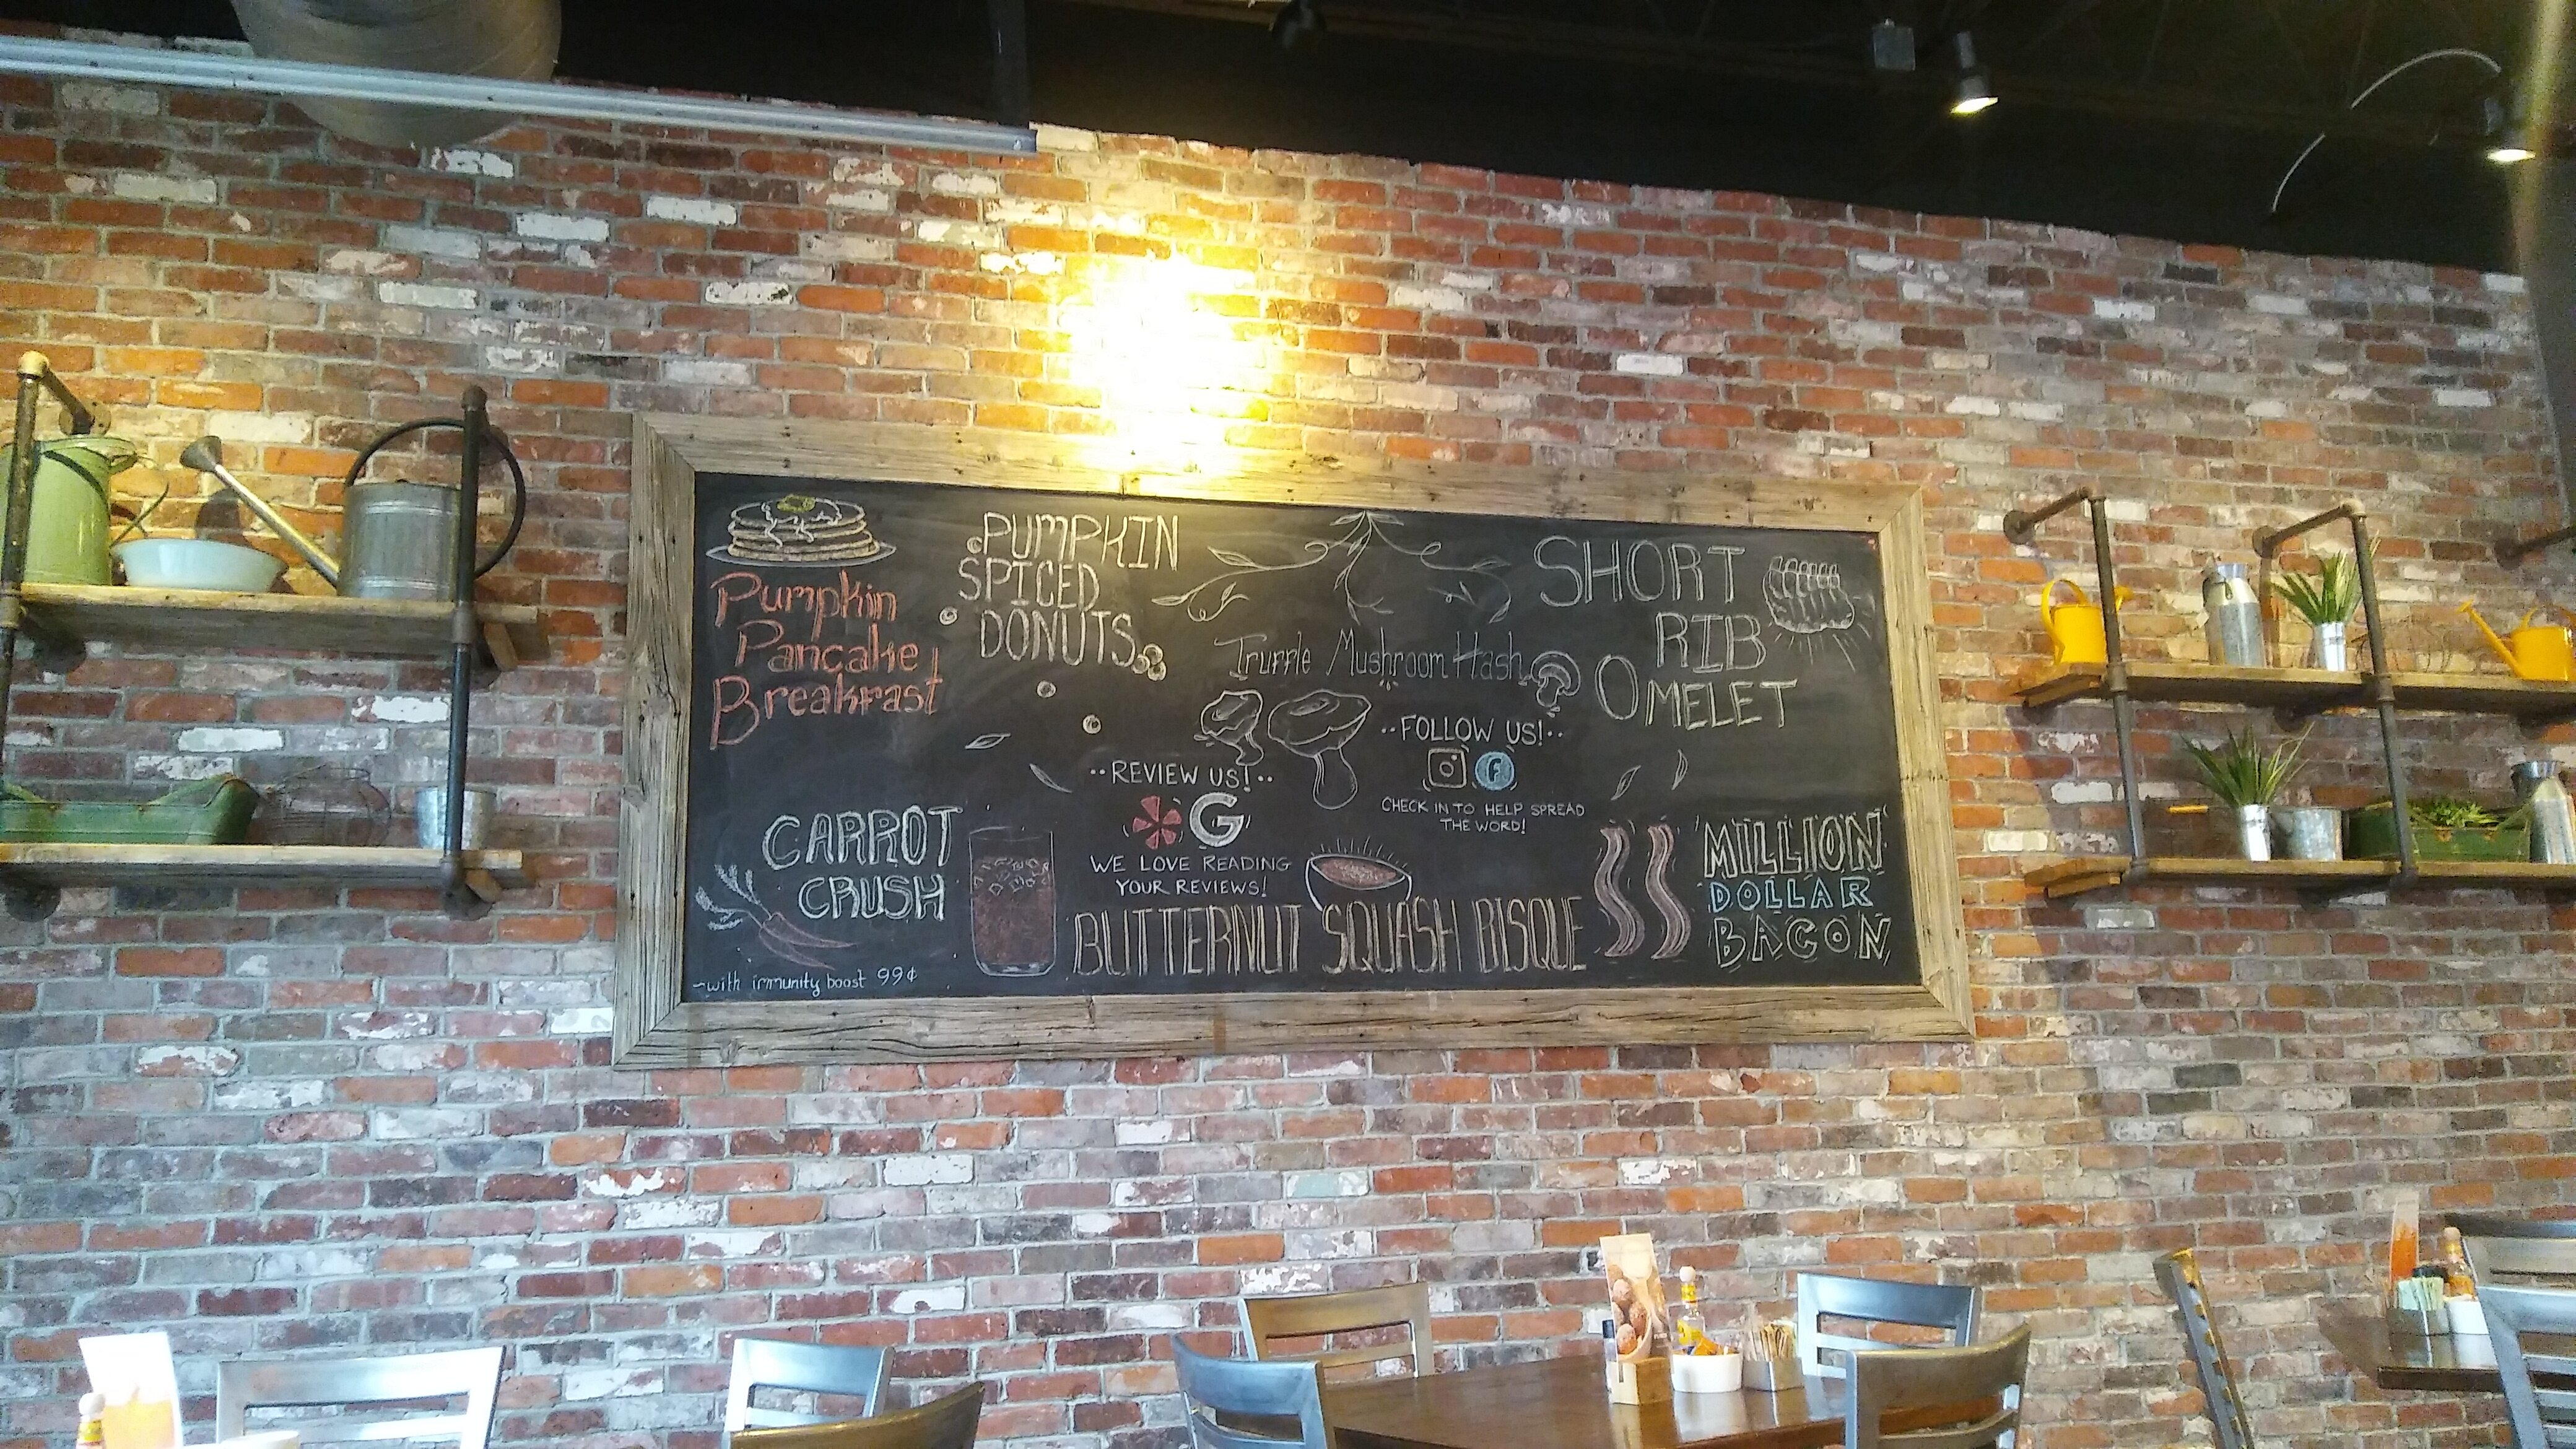 Pumpkin
Pancake
Breakfast
PUMPKIN
SPICED
DONUTS
Truffle Mushroom Hash
SHORT
RIB
OMELET
··FOLLOW US!··
f
CHECK IN TO HELP SPREAD
THE WORD!
··REVIEW US!··
G
WE LOVE READING
YOUR REVIEWS!
CARROT
CRUSH
~with immunity boost 99¢
BUTTERNUT SQUASH BISQUE
MILLION
DOLLAR
BACON